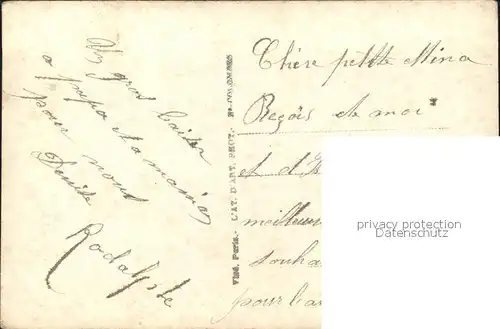 Un gros baiser
a papa et a maman
pour nous
Denise
Rodolphe
Visé, Paris. - L'AT. D'ART PHOT. -
Chère petite Mina
Reçois de moi
et d
meilleurs
souha
pour l'an
privacy protection
Datenschutz